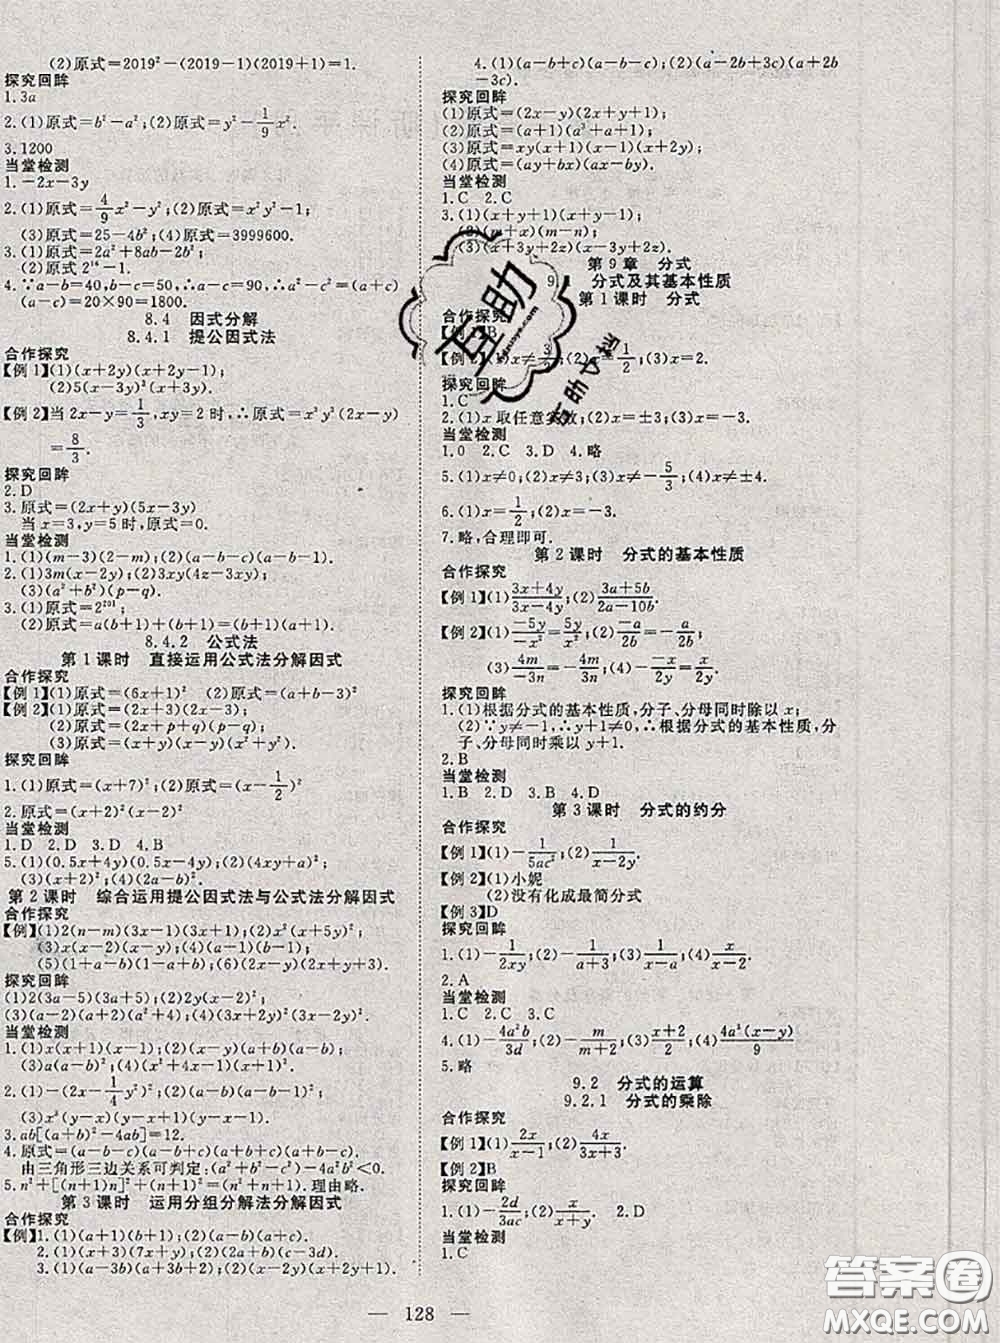 (2)原式=2019²-(2019-1)(2019+1)=1.
探究回眸
1.3a
2.(1)原式=b²-a²;(2)原式=y²-1/9x².
3.1200
当堂检测
1.-2x-3y
2.(1)原式=4/9x²-y²;(2)原式=x²y²-1;
(3)原式=25-4b²;(4)原式=3999600.
3.(1)原式=2a²+8ab-2b²;
(2)原式 2¹⁶-1.
4.∵a-b=40,b-c=50,∴a-c=90,∴a²-c²=(a+c)
(a-c)=20×90=1800.
8.4 因式分解
8.4.1 提公因式法
合作探究
【例1】(1)(x+2y)(x+2y-1);
(2)5(x-3y)²(x-y);
【例2】当2x-y=1/3,xy=2时,∴原式=x³y³(2x-y)
=8/3.
探究回眸
2.D
3.原式=(2x+y)(5x-3y)
当x=3,y=5时,原式=0.
当堂检测
1.(1)(m-3)(2-m);(2)(a-b-c)(a-b-1).
2.(1)3m(x-2y);(2)3xy(4z-3xy);
(3)(a²+b²)(p-q).
3.(1)原式=2²⁰¹;
(2)原式=a(b+1)+(b+1)=(b+1)(a+1).
8.4.2 公式法
第1课时 直接运用公式法分解因式
合作探究
【例1】(1)原式=(6x+1)² (2)原式=(a+b-3)²
【例2】(1)原式=(2x+3)(2x-3);
(2)原式=(2x+p+q)(p-q);
(3)原式=(x+y)(x-y)(x²+y²).
探究回眸
1.(1)原式=(x+7)²;(2)原式=(x-1/2)²
2.原式=(x+2)²(x-2)²
当堂检测
1.D 2.D 3.D 4.B
5.(1)(0.5x+4y)(0.5x-4y);(2)(4xy-1)²;
(3)(2a-b-c)².
第2课时 综合运用提公因式法与公式法分解因式
合作探究
【例】(1)2(n-m)(3x-1)(3x+1);(2)x²(x+5y)²;
(3)x(x-2)(x-y);(4)(a-1)(b-1);
(5)(1+a-b)(1-a+b);(6)(2x-2y+3).
探究回眸
(1)2(3a-5)(3a+5);(2)y(x-2)²;
(3)(a-2)(a+2)(a²+4);(4)(2x-y)².
当堂检测
1.(1)x(x+1)(x-1);(2)(x-1)(x-2);
(3)a(a-b)²;(4)(a-b)(a+b-1).
2.(1)-(2x-1/4y)²;(2)(x+y)²(x-y)²;
(3)x³(y-x)(y-x)(y+x);(4)(x-3)².
3.ab[(a+b)²-4ab]=12.
4.原式=(a+b+c)(a+b-c)(a-b+c)(a-b-c),
由三角形三边关系可判定:(a²+b²-c²)²-4a²b²<0.
5.n²+[(n+1)n]²+(n+1)²=[n(n+1)+1]².理由略.
第3课时 运用分组分解法分解因式
合作探究
【例】1.(1)(a+1)(b+1);(2)(a+c)(a+b).
2.(1)(x+3)(7x+y);(2)(5m+a)(n-2).
3.(1)(a-b)(a+b+2);(2)(x+2y)(x-2y+1).
4.(1)(a-b+c)(a-b-c);(2)(a-2b+3c)(a+2b
-3c).
探究回眸
(1)原式=(2x-y)(2x+y-1);
(2)原式=(a+1)(a³+1)+(a-1);
(3)原式=xy(x+1)(x-1)(x-y);
(4)原式=(ay+bx)(ax-by).
当堂检测
1.C 2.C
3.(1)(x+y+1)(x+y-1);
(2)(m+x)(m-n);
(3)(x+3y+2z)(x-3y-2z).
第9章 分式
9 分式及其基本性质
第1课时 分式
合作探究
【例1】B
【例2】(1)x≠3/2;(2)x=1/2;(3)x=2.
探究回眸
1.C
2.(1)x取任意实数;(2)x=±3;(3)x=-3.
当堂检测
1.0 2.C 3.D 4.略
5.(1)x≠0;(2)x≠3;(3)x≠-5/3;(4)x≠±4.
6.(1)x=1/2;(2)x=-3.
7.略,合理即可.
第2课时 分式的基本性质
合作探究
【例1】(1)3x+4y/3x-4y;(2)3a+5b/2a-10b.
【例2】(1)-5y/-x²=5y/x²;(2)-a/-2b=a/2b;
(3)4m/-3n=-4m/3n;(4)-(-x/2y)=x/2y.
探究回眸
1.(1)根据分式的基本性质,分子、分母同时除以x;
(2)∵y≠-1,∴y+1≠0,∴根据分式的基本性质,分
子、分母同时乘以y+1.
2.B
当堂检测
1.B 2.D 3.B 4.D
第3课时 分式的约分
合作探究
【例1】(1)-1/5ac²;(2)1/x-2y.
【例2】(1)小妮
(2)没有化成最简分式
【例3】D
探究回眸
1.(1)-1/2xy;(2)-1/a+3;(3)-x/x-y.
2.A
当堂检测
1.C 2.C 3.C
4.(1)-4a²b/3d;(2)-m/m+2;(3)x+2/x-2;(4)4a²(x-y)/9
5.略
9.2 分式的运算
9.2.1 分式的乘除
合作探究
【例1】(1)2x/x-1;(2)4x/3x+3.
【例2】B
探究回眸
1.(1)-2d/3ac;(2)x/x+y. 2.D
当堂检测
1.C
— 128 —
互助
答案圈
MXQE.COM